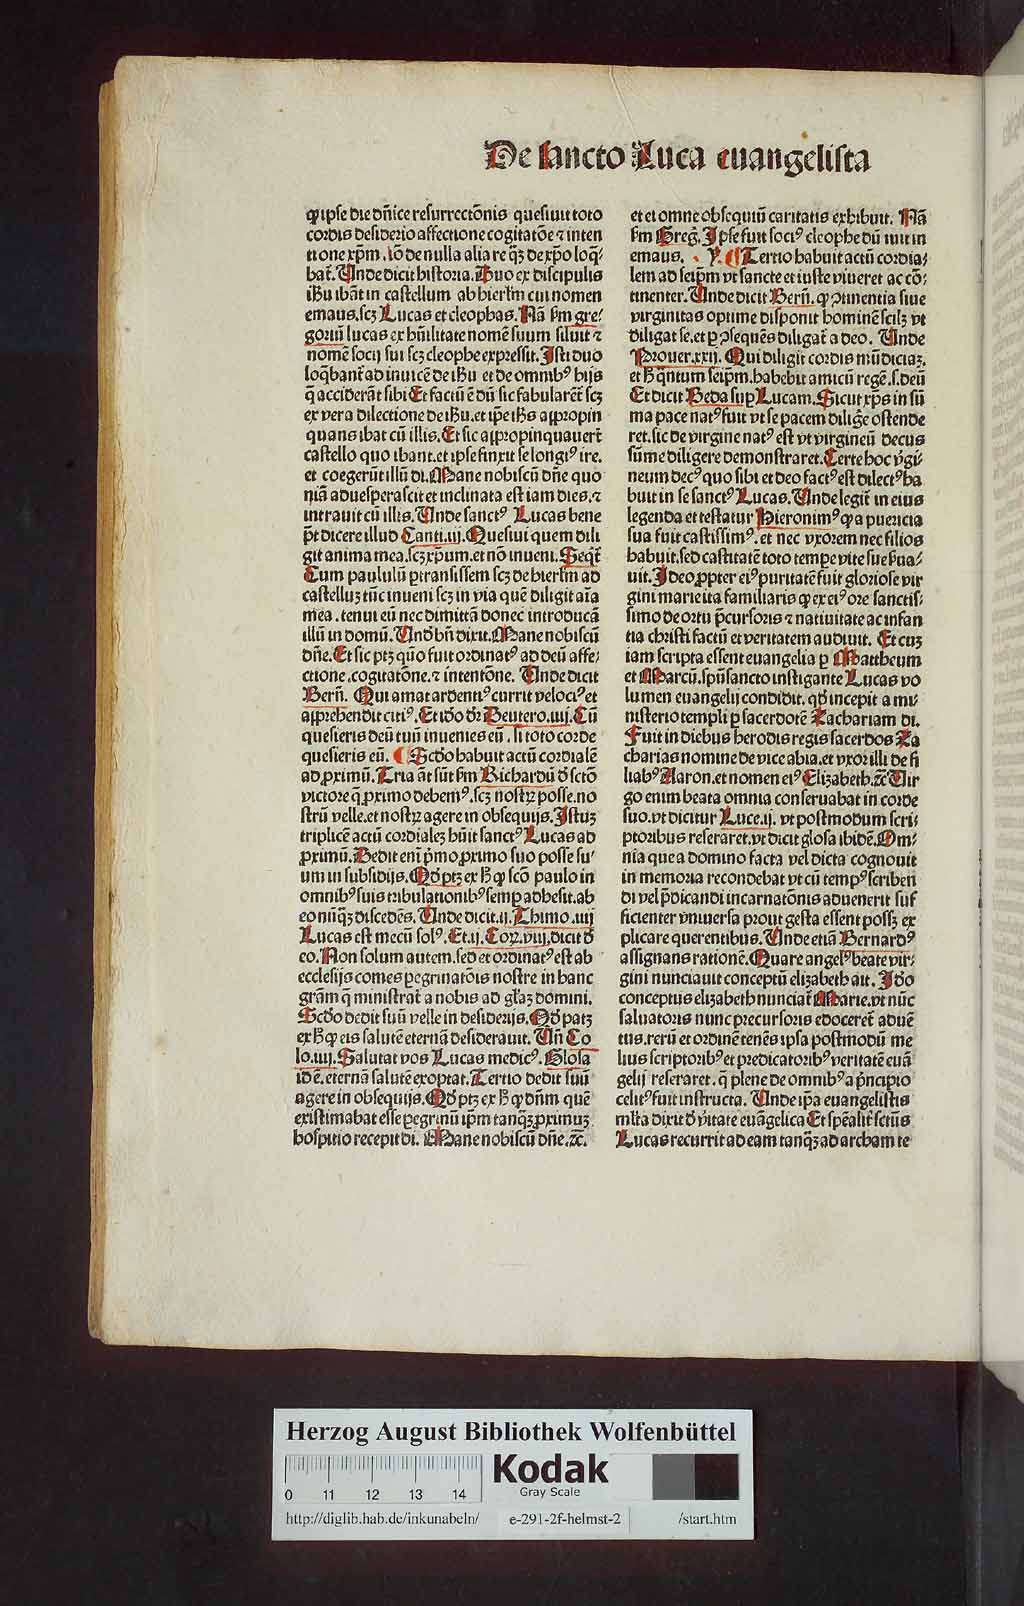 De sancto Luca euangelista
qͥ ipse die dn̄ice resurrectōnis quesiuit toto
cordis desiderio affectione cogitatōe ⁊ inten
tione xp̄m. iō de nulla alia re qꝫ de xp̄o loq̄-
bat᷑. Unde dicit historia. Duo ex discipulis
ihū ibāt in castellum ab hierl̄m cui nomen
emaus. scꝫ Lucas et cleophas. Nā sm̄ gre-
goriū lucas ex hūilitate nomē suum siluit ⁊
nomē socij sui scꝫ cleophe expressit. Isti duo
loq̄bant᷑ ad inuicē de ihū et de omnibꝰ hijs
q̄ acciderāt sibi Et factū ē dū sic fabularēt᷑ scꝫ
ex vera dilectione de ihū. et ip̄e ihs̄ appropin
quans ibat cū illis. Et sic appropinquauert̄
castello quo ibant. et ipse finxit se longiꝰ ire.
et coegerūt illū di. Mane nobiscū dn̄e quo
niā aduesperascit et inclinata est iam dies. ⁊
intrauit cū illis. Unde sanctꝰ Lucas bene
p̄t dicere illud Canti.iij. Quesiui quem dili
git anima mea. scꝫ xp̄um. et nō inueni. Seqt᷑
Cum paululū ꝑtransissem scꝫ de hierl̄m ad
castelluꝫ tūc inueni scꝫ in via quē diligit aīa
mea. tenui eū nec dimittā donec introducā
illū in domū. Und̄ bn̄ dixit. Mane nobiscū
dn̄e. Et sic ptꝫ quō fuit ordinatꝰ ad deū affe-
ctione. cogitatōne. ⁊ intentōne. Unde dicit
Bern̄. Qui amat ardentiꝰ currit velociꝰ et
apprehendit citiꝰ. Et iđo dr̄ Deutero.iiij. Cū
quesieris deū tuū inuenies eū. si toto corde
quesieris eū. ¶ Scđo habuit actū cordialē
ad ꝓximū. Tria āt sūt sm̄ Richardū đ sctō
victore q̄ ꝓximo debemꝰ. scꝫ nostꝝ posse. no
strū velle. et nostꝝ agere in obsequijs. Istuꝫ
triplicē actū cordialeꝫ hūit sanctꝰ Lucas ad
ꝓximū. Dedit enī pͥmo ꝓximo suo posse su-
um in subsidijs. Qđ ptꝫ ex hͦ qꝫ scō paulo in
omnibꝰ suis tribulationibꝰ semꝑ adhesit. ab
eo nūqꝫ discedēs. Unde dicit.ij. Thimo.iiij
Lucas est mecū solꝰ. Et.ij. Coꝝ.viij. dicit đ
eo. Non solum autem. sed et ordinatꝰ est ab
ecclesijs comes ꝑegrinatōis nostre in hanc
grām q̄ ministrat᷑ a nobis ad gl̄iaꝫ domini.
Scđo dedit suū velle in desiderijs. Qđ patꝫ
ex hͦ qꝫ eis salutē eternā desiderauit. Un̄ Co
lo.iiij. Salutat vos Lucas medicꝰ. Glosa
id ē. eternā salutē exoptat. Tertio dedit suū
agere in obsequijs. Qđ ptꝫ ex hͦ qꝫ dn̄m quē
existimabat esse ꝑegrinū ip̄m tanqꝫ ꝓximuꝫ
hospitio recepit di. Mane nobiscū dn̄e. ⁊c̄.
et ei omne obsequiū caritatis exhibuit. Nā
sm̄ Greg̃. Ipse fuit sociꝰ cleophe dū iuit in
emaus. ¶ Tertio habuit actū cordia-
lem ad seip̄m vt sancte et iuste viueret ac cō-
tinenter. Unde dicit Bern̄. qꝫ ꝯtinentia siue
virginitas optime disponit hominē scilꝫ vt
diligat se. et ꝑ ꝯsequēs diligat᷑ a deo. Unde
Prouer.xxij. Qui diligit cordis mūdiciaꝫ.
et hͦ qͣntum seip̄m. habebit amicū regē .s. deū
Et dicit Beda suꝑ Lucam. Sicut xp̄s in sū
ma pace natꝰ fuit vt se pacem diligē ostende
ret. sic de virgine natꝰ est vt virgineū decus
sūme diligere demonstraret. Certe hoc vͥgi-
neum decꝰ quo sibi et deo factꝰ est dilectꝰ ha
buit in se sanctꝰ Lucas. Unde legit᷑ in eius
legenda et testatur Hieronimꝰ qꝫ a puericia
sua fuit castissimꝰ. et nec vxorem nec filios
habuit. sed castitatē toto tempe vite sue s̄ua-
uit. Ideo ꝓpter eiꝰ puritatē fuit gloriose vir
gini marie ita familiaris qꝫ ex eiꝰ ore sanctis-
simo de ortu p̄cursoris ⁊ natiuitate ac infan
tia christi factū et veritatem audiuit. Et cuꝫ
iam scripta essent euangelia ꝑ Mattheum
et Marcū. spūsancto instigante Lucas vo
lumen euangelij condidit. qđ incepit a mi-
nisterio templi ꝑ sacerdotē Zachariam di.
Fuit in diebus herodis regis sacerdos Za
charias nomine de vice abia. et vxor illi de fi
liabꝰ Aaron. et nomen eiꝰ Elizabeth. ⁊c̄ Vir
go enim beata omnia conseruabat in corde
suo. vt dicitur Luce.ij. vt postmodum scri-
ptoribus reseraret. vt dicit glosa ibidē. Om-
nia que a domino facta vel dicta cognouit
in memoria recondebat vt cū tempꝰ scriben
di vel p̄dicandi incarnatōnis aduenerit suf
ficienter vniuersa prout gesta essent possꝫ ex
plicare querentibus. Unde etiā Bernardꝰ
assignans rationē. Quare angelꝰ beate vir-
gini nunciauit conceptū elizabeth ait. Iđo
conceptus elizabeth nunciat᷑ Marie. vt nūc
saluatoris nunc precursoris edoceret᷑ aduē
tus. rerū et ordinē tenēs ipsa postmodū me
lius scriptoribꝰ et predicatoribꝰ veritatē euā
gelij reseraret. q̄ plene de omnibꝰ a pͥncipio
celitꝰ fuit instructa. Unde ip̄a euangelistis
ml̄ta dixit đ vͥitate euāgelica Et spēalit᷑ sctūs
Lucas recurrit ad eam tanqꝫ ad archam te
Herzog August Bibliothek Wolfenbüttel
Kodak
Gray Scale
0 11 12 13 14
http://diglib.hab.de/inkunabeln/ e-291-2f-helmst-2 /start.htm